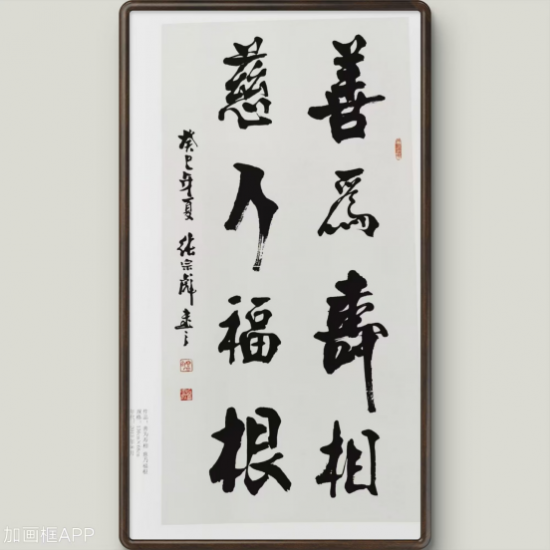 善爲壽相
慈乃福根
癸巳年夏 張宗彪書之
加画框APP